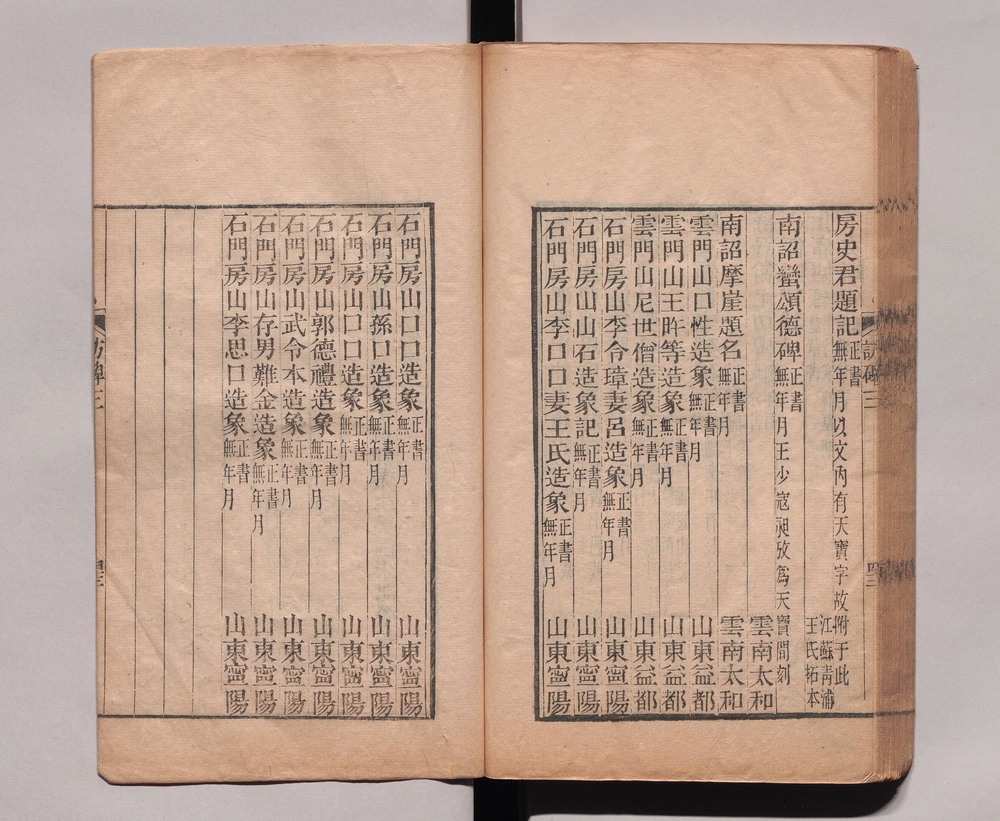 房史君題記正書無年月以文內有天寶字故附于此
江蘇青浦王氏拓本
南詔蠻頌德碑正書無年月王少寇昶攷爲天寶間刻
雲南太和
南詔摩崖題名正書無年月 雲南太和
雲門山口性造象正書無年月 山東益都
雲門山王昨等造象正書無年月 山東益都
雲門山尼世僧造象正書無年月 山東益都
石門房山李令璋妻呂造象正書無年月 山東寧陽
石門房山山石造象記正書無年月 山東寧陽
石門房山李口口妻王氏造象正書無年月 山東寧陽
訪碑三
石門房山口口造象正書無年月 山東寧陽
石門房山孫口造象正書無年月 山東寧陽
石門房山口口造象正書無年月 山東寧陽
石門房山郭德禮造象正書無年月 山東寧陽
石門房山武令本造象正書無年月 山東寧陽
石門房山存男難金造象正書無年月 山東寧陽
石門房山李思口造象正書無年月 山東寧陽
訪碑三